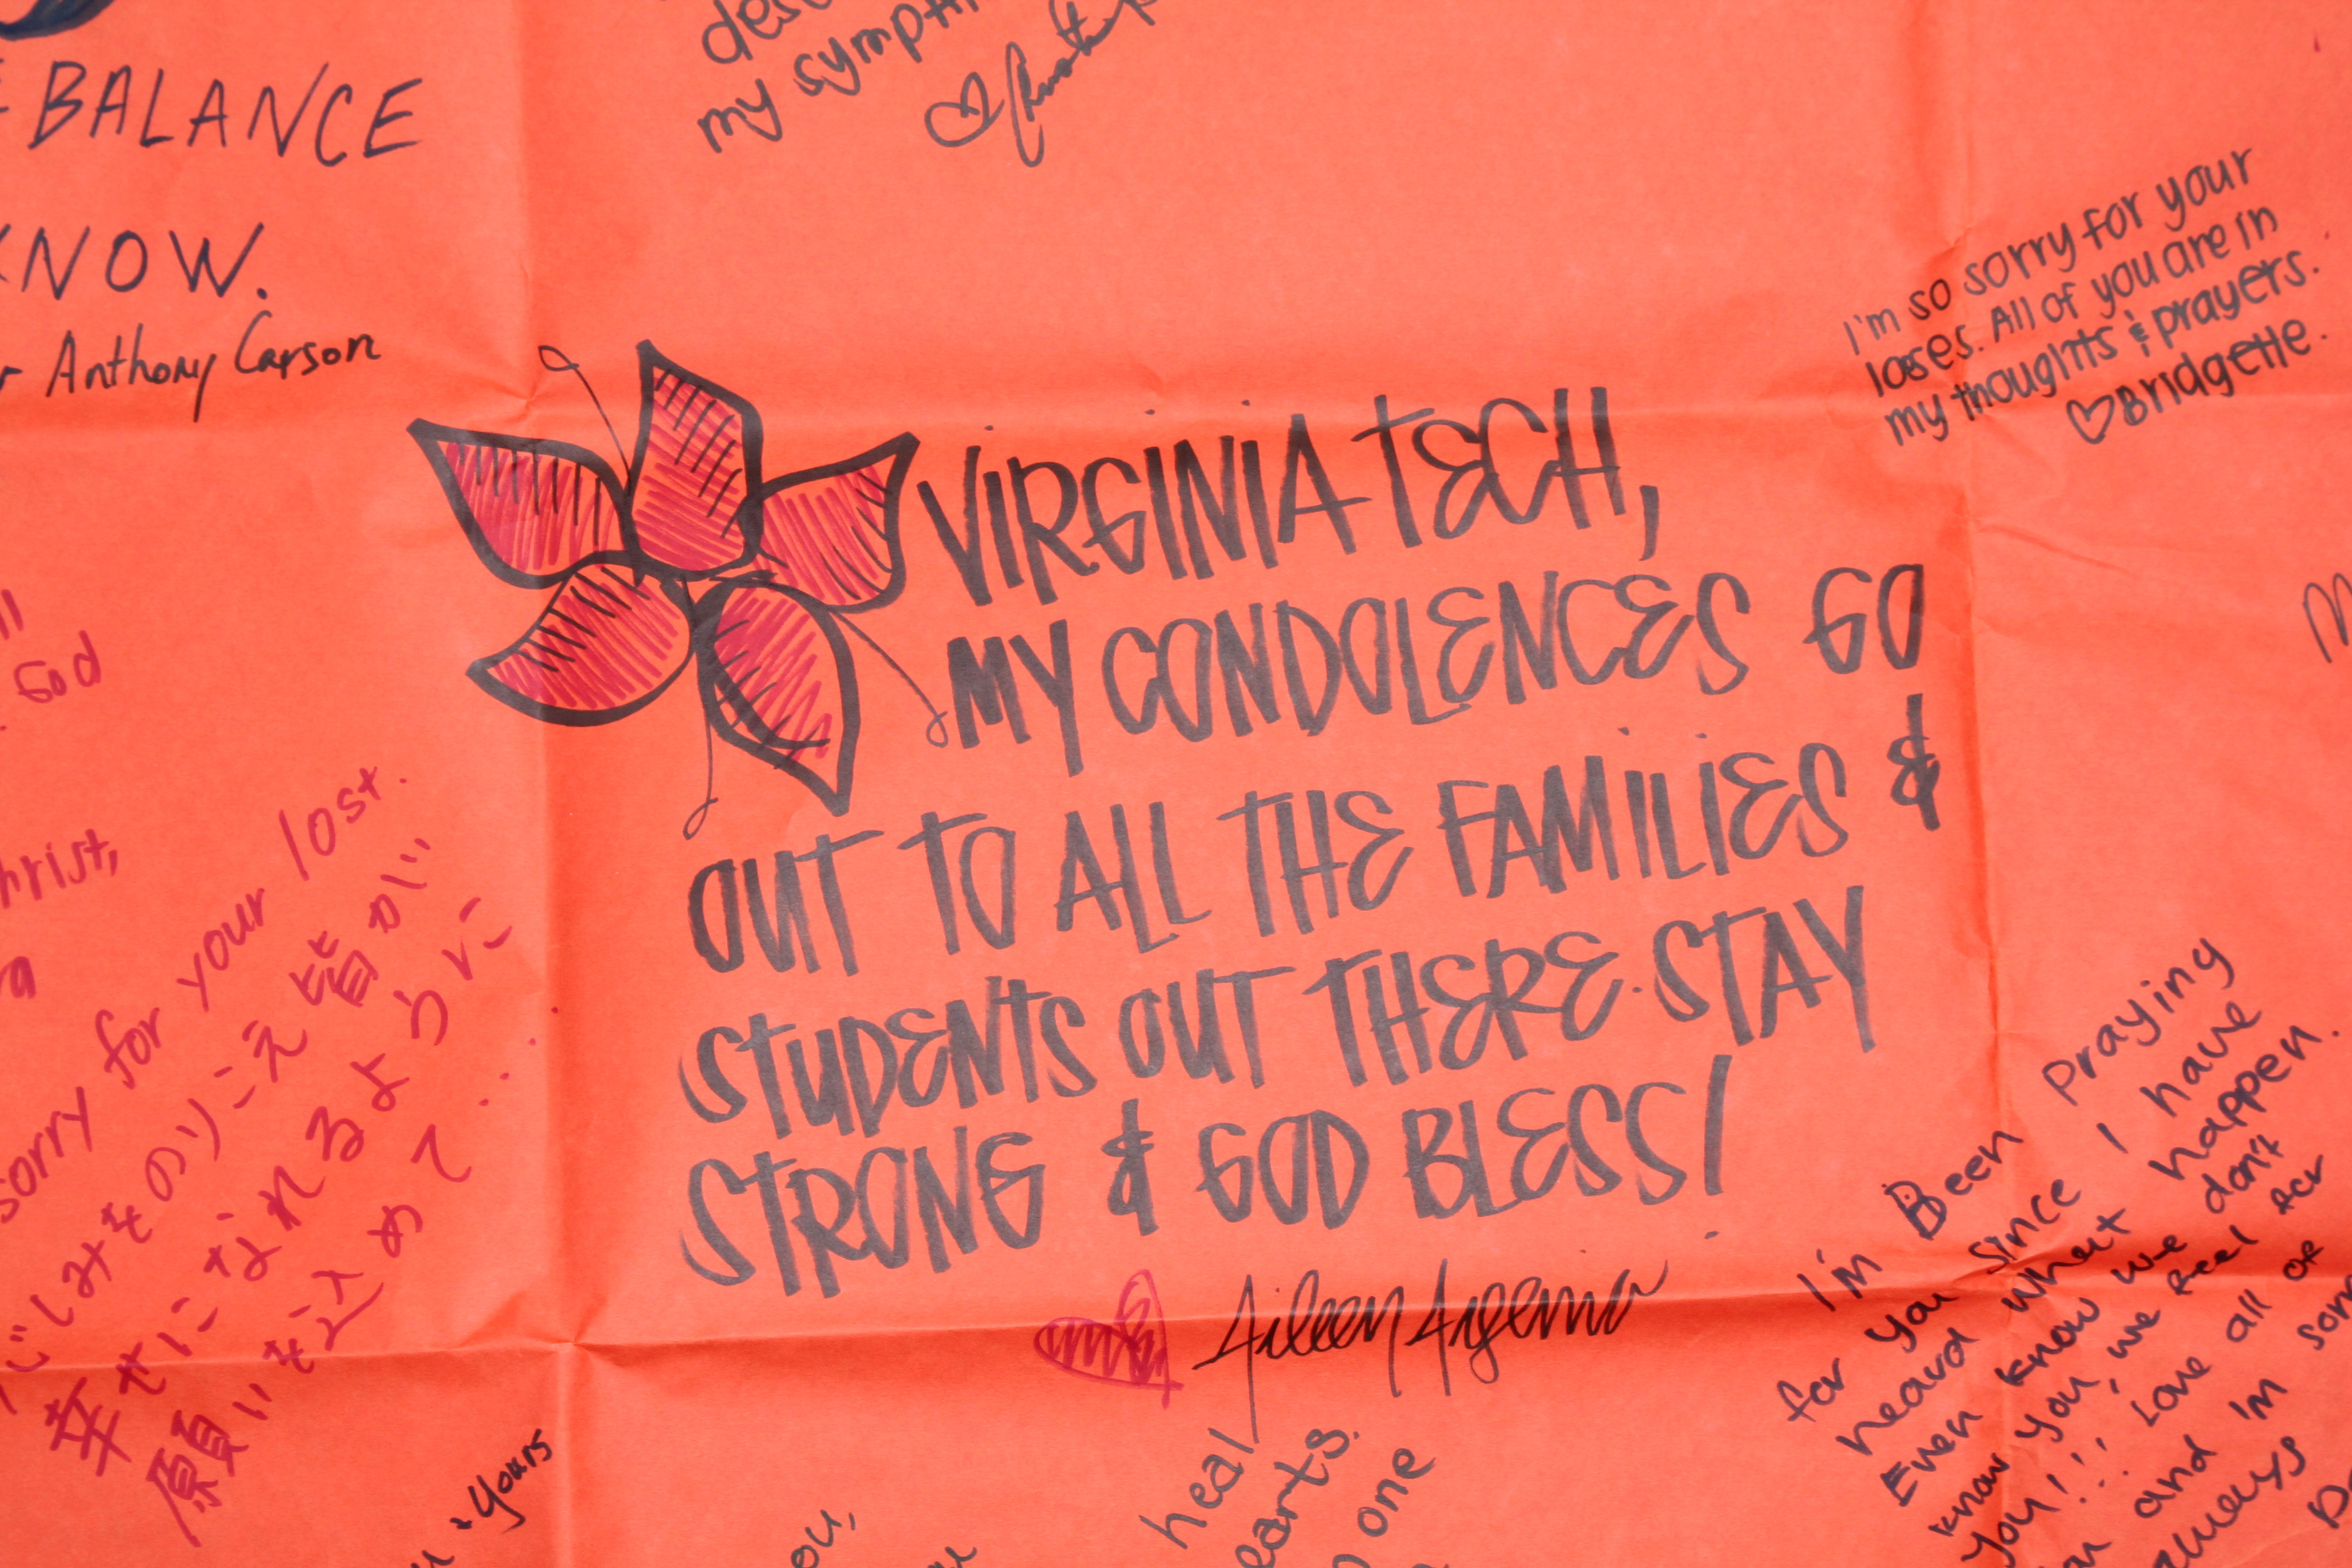 BALANCE
KNOW.
Anthony Carson
my symp
I'm so sorry for your
loses. All of you are in
my thoughts & prayers.
♡Bridgette.
VIRGINIA TECH,
MY CONDOLENCES GO
OUT TO ALL THE FAMILIES &
STUDENTS OUT THERE. STAY
STRONG & GOD BLESS!
Aileen
God
hrist,
sorry for your lost.
じしみをのりこえ皆が
幸せになれるように
願いを込めて...
& Yours
ou,
heal
earts.
one
I'm Been praying
for you since I have
heard what happen.
Even know we don't
know you, we feel for
you!!! Love all of
and I'm som
always